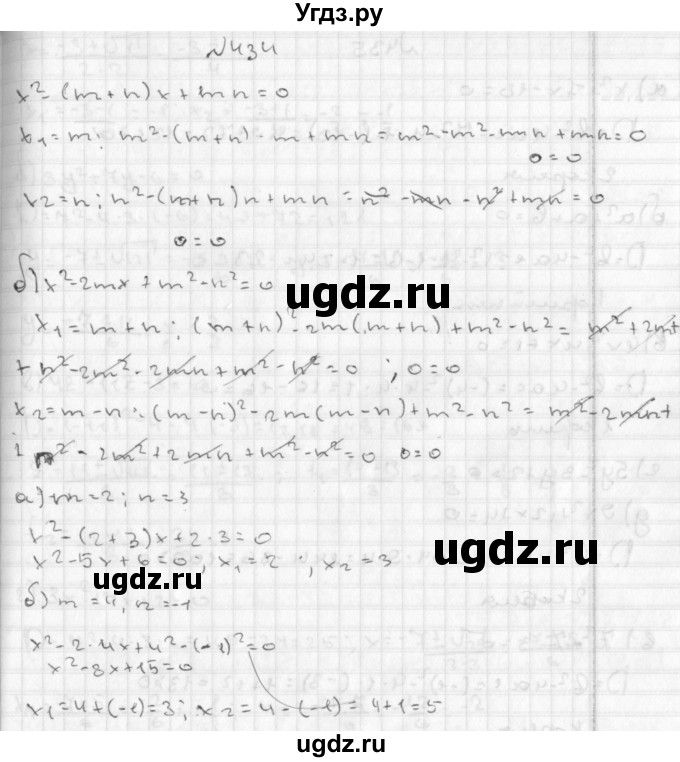 Угдз.ру
№434
x² - (m + n)x + mn = 0
x₁ = m; m² - (m + n) · m + mn = m² - m² - mn + mn = 0
0 = 0
x₂ = n; n² - (m + n)n + mn = n² - mn - n² + mn = 0
0 = 0
б) x² - 2mx + m² - n² = 0
x₁ = m + n; (m + n)² - 2m(m + n) + m² - n² = m² + 2mn +
+ n² - 2m² - 2mn + m² - n² = 0 ; 0 = 0
x₂ = m - n; (m - n)² - 2m(m - n) + m² - n² = m² - 2mn +
n² - 2m² + 2mn + m² - n² = 0 0 = 0
а) m = 2; n = 3
x² - (2 + 3)x + 2 · 3 = 0
x² - 5x + 6 = 0; x₁ = 2 ; x₂ = 3
б) m = 4; n = -1
x² - 2 · 4x + 4² - (-1)² = 0
x² - 8x + 15 = 0
x₁ = 4 + (-1) = 3; x₂ = 4 - (-1) = 4 + 1 = 5
ugdz.ru
ugdz.ru
ugdz.ru
ugdz.ru